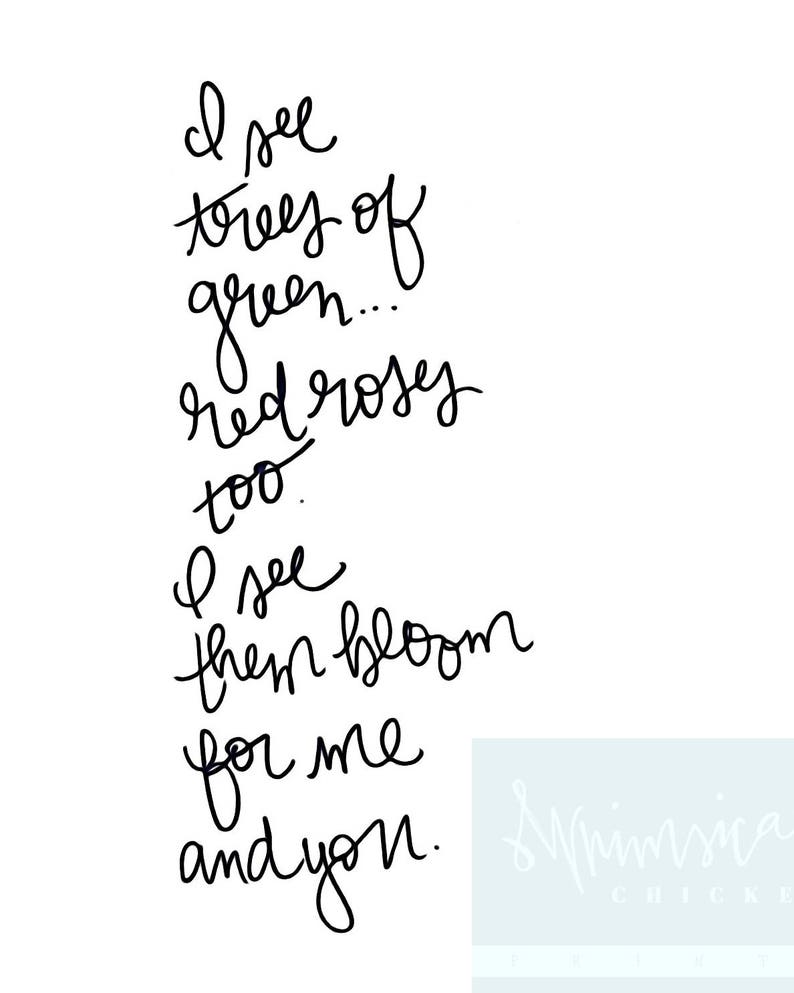 I see
trees of
green...
red roses
too.
I see
them bloom
for me
and you.
Whimsica
CHICKE
PRINT